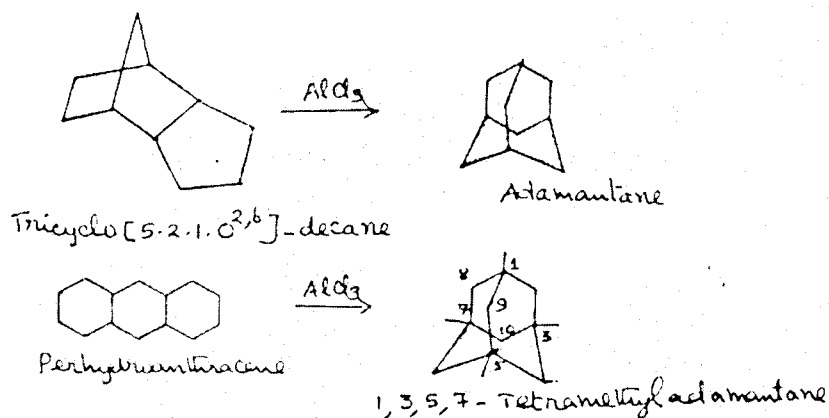 AlCl3
Adamantane
Tricyclo[5.2.1.0^2,6]-decane
AlCl3
8 1
7 9
10 3
5
Perhydroanthracene
1,3,5,7-Tetramethyladamantane